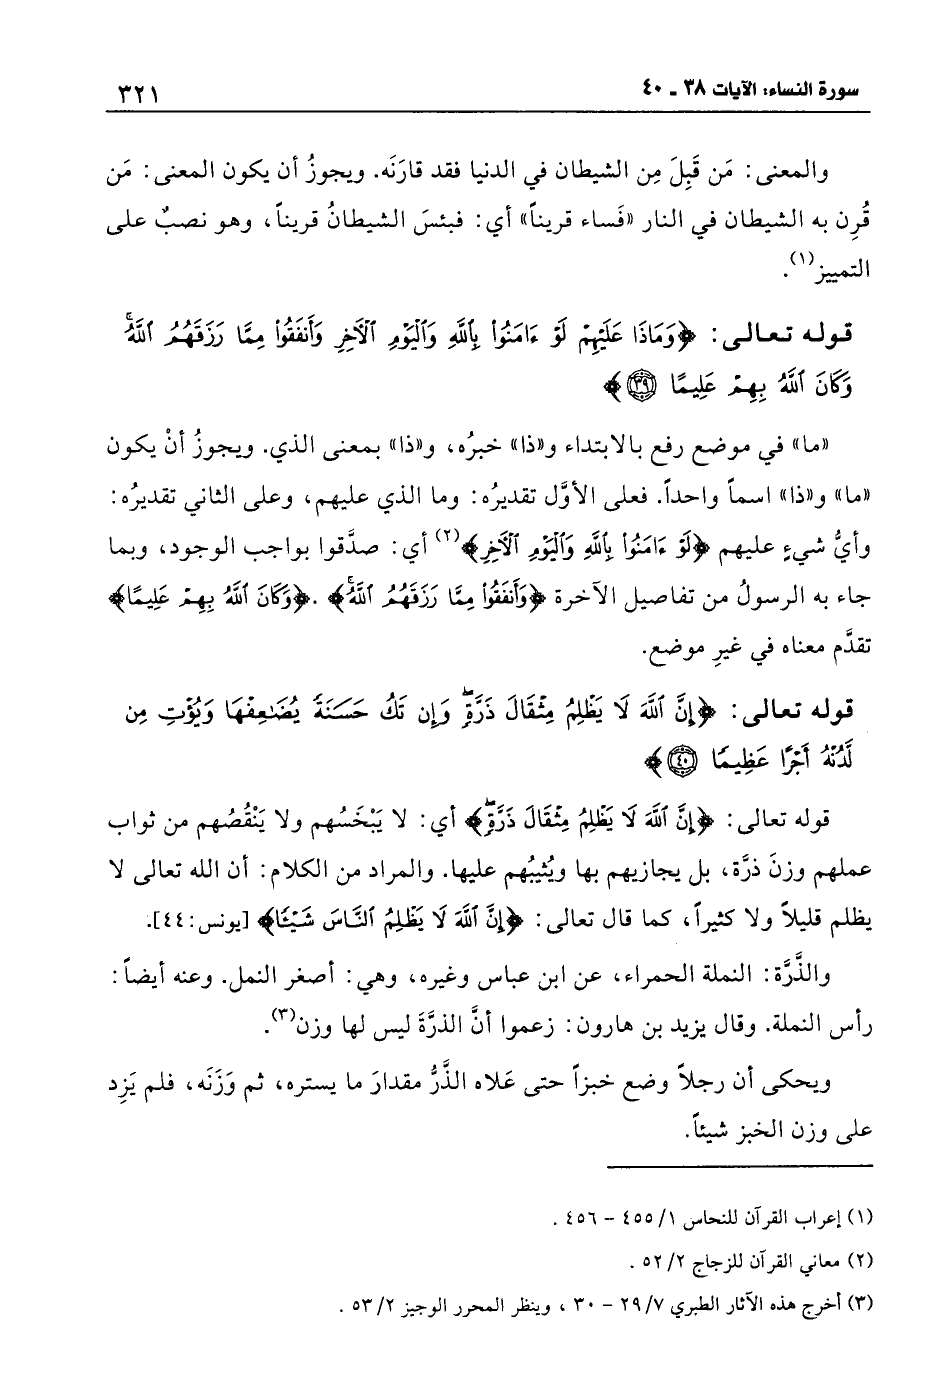 سورة النساء: الآيات ٣٨ - ٤٠
٣٢١
والمعنى: مَن قَبِلَ مِن الشيطان في الدنيا فقد قارَنَه. ويجوزُ أن يكون المعنى: مَن
قُرِن به الشيطان في النار «فَساء قريناً» أي: فبئسَ الشيطانُ قريناً، وهو نصبٌ على
التمييز(١).
قوله تعالى: ﴿وَمَاذَا عَلَيْهِمْ لَوْ ءَامَنُوا۟ بِٱللَّهِ وَٱلْيَوْمِ ٱلْأٓخِرِ وَأَنفَقُوا۟ مِمَّا رَزَقَهُمُ ٱللَّهُۚ
وَكَانَ ٱللَّهُ بِهِمْ عَلِيمًا ٣٩﴾
«ما» في موضع رفع بالابتداء و«ذا» خبرُه، و«ذا» بمعنى الذي. ويجوزُ أنْ يكون
«ما» و«ذا» اسماً واحداً. فعلى الأوَّل تقديرُه: وما الذي عليهم، وعلى الثاني تقديرُه:
وأيُّ شيءٍ عليهم ﴿لَوْ ءَامَنُوا۟ بِٱللَّهِ وَٱلْيَوْمِ ٱلْأٓخِرِ﴾(٢) أي: صدَّقوا بواجب الوجود، وبما
جاء به الرسولُ من تفاصيل الآخرة ﴿وَأَنفَقُوا۟ مِمَّا رَزَقَهُمُ ٱللَّهُۚ﴾. ﴿وَكَانَ ٱللَّهُ بِهِمْ عَلِيمًا﴾
تقدَّم معناه في غيرِ موضع.
قوله تعالى: ﴿إِنَّ ٱللَّهَ لَا يَظْلِمُ مِثْقَالَ ذَرَّةٍۖ وَإِن تَكُ حَسَنَةً يُضَٰعِفْهَا وَيُؤْتِ مِن
لَّدُنْهُ أَجْرًا عَظِيمًا ٤٠﴾
قوله تعالى: ﴿إِنَّ ٱللَّهَ لَا يَظْلِمُ مِثْقَالَ ذَرَّةٍۖ﴾ أي: لا يَبْخَسُهم ولا يَنْقُصُهم من ثواب
عملهم وزنَ ذرَّة، بل يجازيهم بها ويُثيبُهم عليها. والمراد من الكلام: أن الله تعالى لا
يظلم قليلاً ولا كثيراً، كما قال تعالى: ﴿إِنَّ ٱللَّهَ لَا يَظْلِمُ ٱلنَّاسَ شَيْـًٔا﴾ [يونس: ٤٤].
والذَّرَّة: النملة الحمراء، عن ابن عباس وغيره، وهي: أصغر النمل. وعنه أيضاً:
رأس النملة. وقال يزيد بن هارون: زعموا أنَّ الذرَّةَ ليس لها وزن(٣).
ويحكى أن رجلاً وضع خبزاً حتى عَلاه الذَّرُّ مقدارَ ما يستره، ثم وَزَنَه، فلم يَزِد
على وزن الخبز شيئاً.
(١) إعراب القرآن للنحاس ١/ ٤٥٥ - ٤٥٦ .
(٢) معاني القرآن للزجاج ٢/ ٥٢ .
(٣) أخرج هذه الآثار الطبري ٧/ ٢٩ - ٣٠ ، وينظر المحرر الوجيز ٢/ ٥٣ .